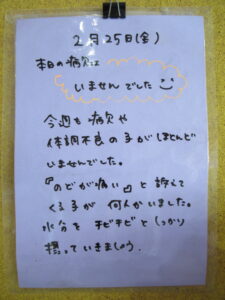 2月25日(金)
本日の病欠は
いませんでした
今週も病欠や
体調不良の子がほとんど
いませんでした。
『のどが痛い』と訴えて
くる子が何人かいました。
水分をチビチビとしっかり
摂っていきましょう.